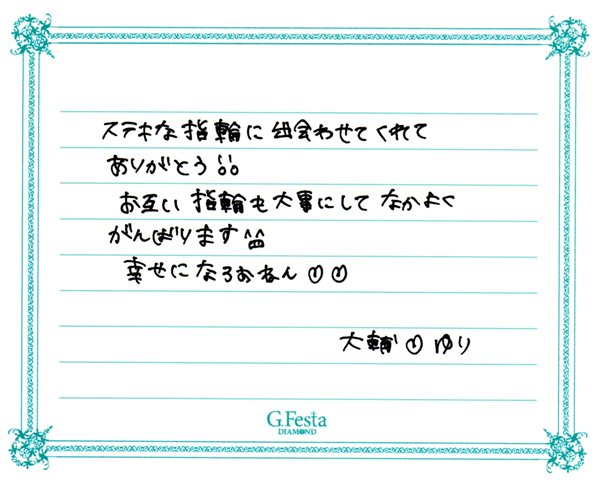 ステキな指輪に出会わせてくれて
ありがとう!!
お互い指輪も大事にしてなかよく
がんばります^^
幸せになろおねん♡♡
大輔♡ゆり
G.Festa
DIAMOND